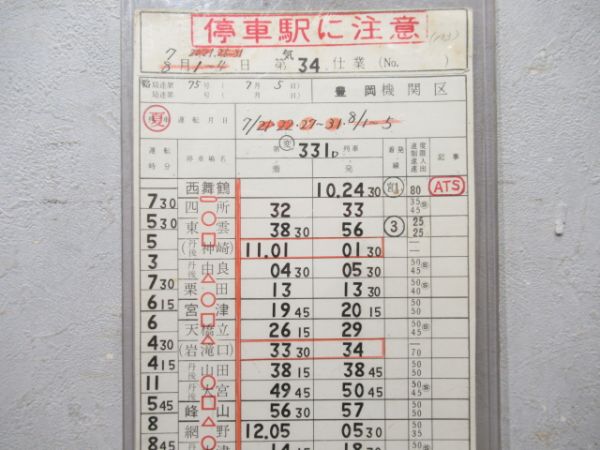 停車駅に注意
8月1~4日 第気34仕業(No. )
略 局達第 75号 (7月5日)
局達第 号 (月 日)
豊岡機関区
夏 運転月日 7/21·22·27~31·8/1~5
運転時分 停車場名 第変331D列車 着 発 着発線 速度制限 進入 進出 記事
西舞鶴 10.24 30 80 ATS
7 30 四所 32 33 35 45
5 30 東雲 38 30 56 3 25 25
5 (丹後神崎) 11.01 01 30 —
3 丹後由良 04 30 05 30 50 45
7 栗田 13 13 30 50 40
6 15 宮津 19 45 20 15 50 50
6 天橋立 26 15 29 50 45
4 30 (岩滝口) 33 30 34 — 70
4 丹後山田 38 15 38 45 50 50
11 大宮 49 45 50 45 50 45
5 45 峰山 56 30 57 50 50
8 網野 12.05 05 30 50 35
8 45 木津 14 15 18 30 50